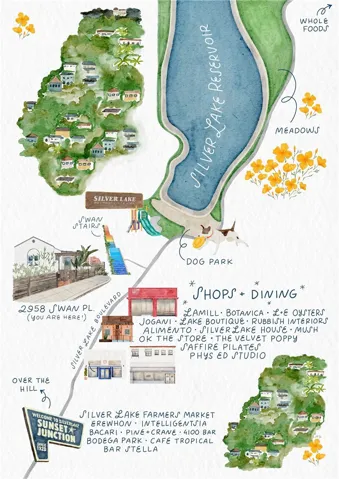 WHOLE
FOODS
SILVER LAKE RESERVOIR
MEADOWS
SILVER LAKE
SWAN
STAIRS
DOG PARK
2958 SWAN PL.
(YOU ARE HERE!)
SILVER LAKE BOULEVARD
SHOPS + DINING
LAMILL · BOTANICA · L+E OYSTERS
JOGANI · LAKE BOUTIQUE · RUBBISH INTERIORS
ALIMENTO · SILVER LAKE HOUSE · MUSH
OK THE STORE · THE VELVET POPPY
SAFFIRE PILATES
PHYS ED STUDIO
OVER THE
HILL
WELCOME TO SILVER LAKE
SUNSET
JUNCTION
SILVER LAKE FARMERS MARKET
EREWHON · INTELLIGENTSIA
BACARI · PINE + CRANE · 4100 BAR
BODEGA PARK · CAFE TROPICAL
BAR STELLA